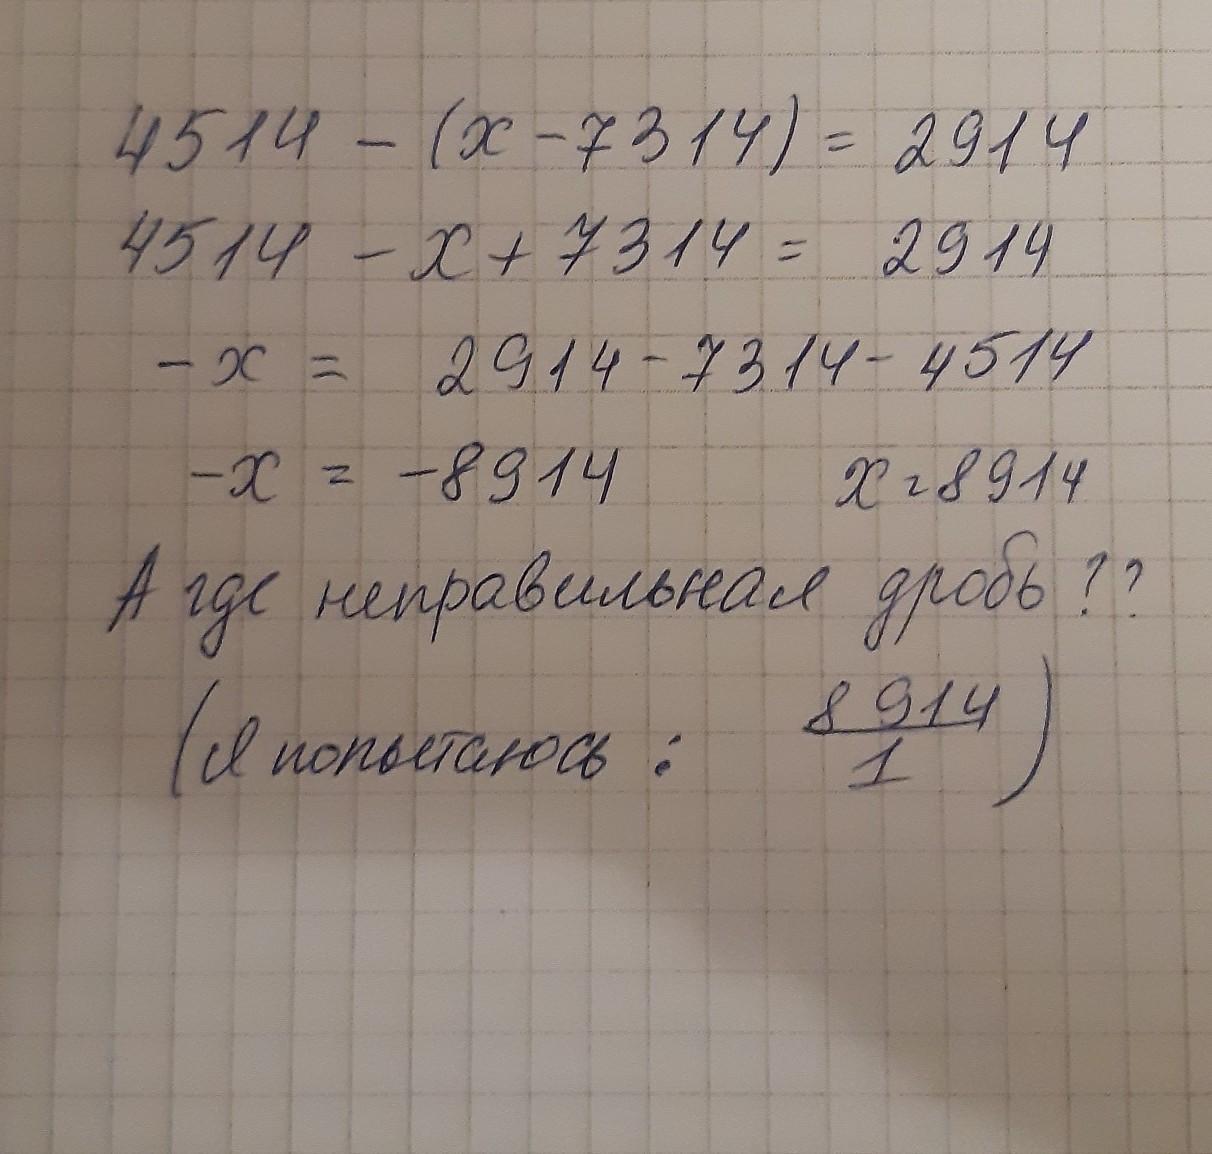 4514 - (x - 7314) = 2914
4514 - x + 7314 = 2914
-x = 2914 - 7314 - 4514
-x = -8914 x = 8914
А где неправильная дробь??
(Я попытаюсь: 8914/1)